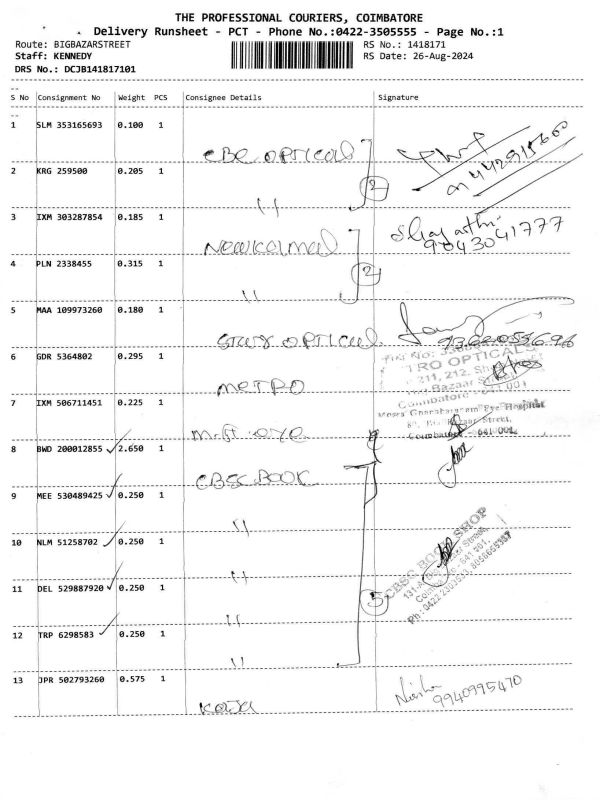 THE PROFESSIONAL COURIERS, COIMBATORE
Delivery Runsheet - PCT - Phone No.:0422-3505555 - Page No.:1
Route: BIGBAZARSTREET RS No.: 1418171
Staff: KENNEDY RS Date: 26-Aug-2024
DRS No.: DCJB141817101
--
S No Consignment No Weight PCS Consignee Details Signature
--
1 SLM 353165693 0.100 1
CBE OPTICAL
2 KRG 259500 0.205 1
" 2
3 IXM 303287854 0.185 1
9043041777
4 PLN 2338455 0.315 1
" 2
5 MAA 109973260 0.180 1
OPTICAL
6 GDR 5364802 0.295 1
METRO
TRO OPTICALS
211, 212,
Bazaar Street
Coimbatore - 641 001
7 IXM 506711451 0.225 1
eye
Eye Hospital
Street,
Coimbatore - 641 001.
8 BWD 200012855 ✓ 2.650 1
CBSC BOOK
9 MEE 530489425 ✓ 0.250 1
"
10 NLM 51258702 ✓ 0.250 1
"
CBSC BOOK SHOP
Street,
Coimbatore - 641 001.
11 DEL 529887920 ✓ 0.250 1
" 5
12 TRP 6298583 ✓ 0.250 1
"
13 JPR 502793260 0.575 1
Nisha
9940995470